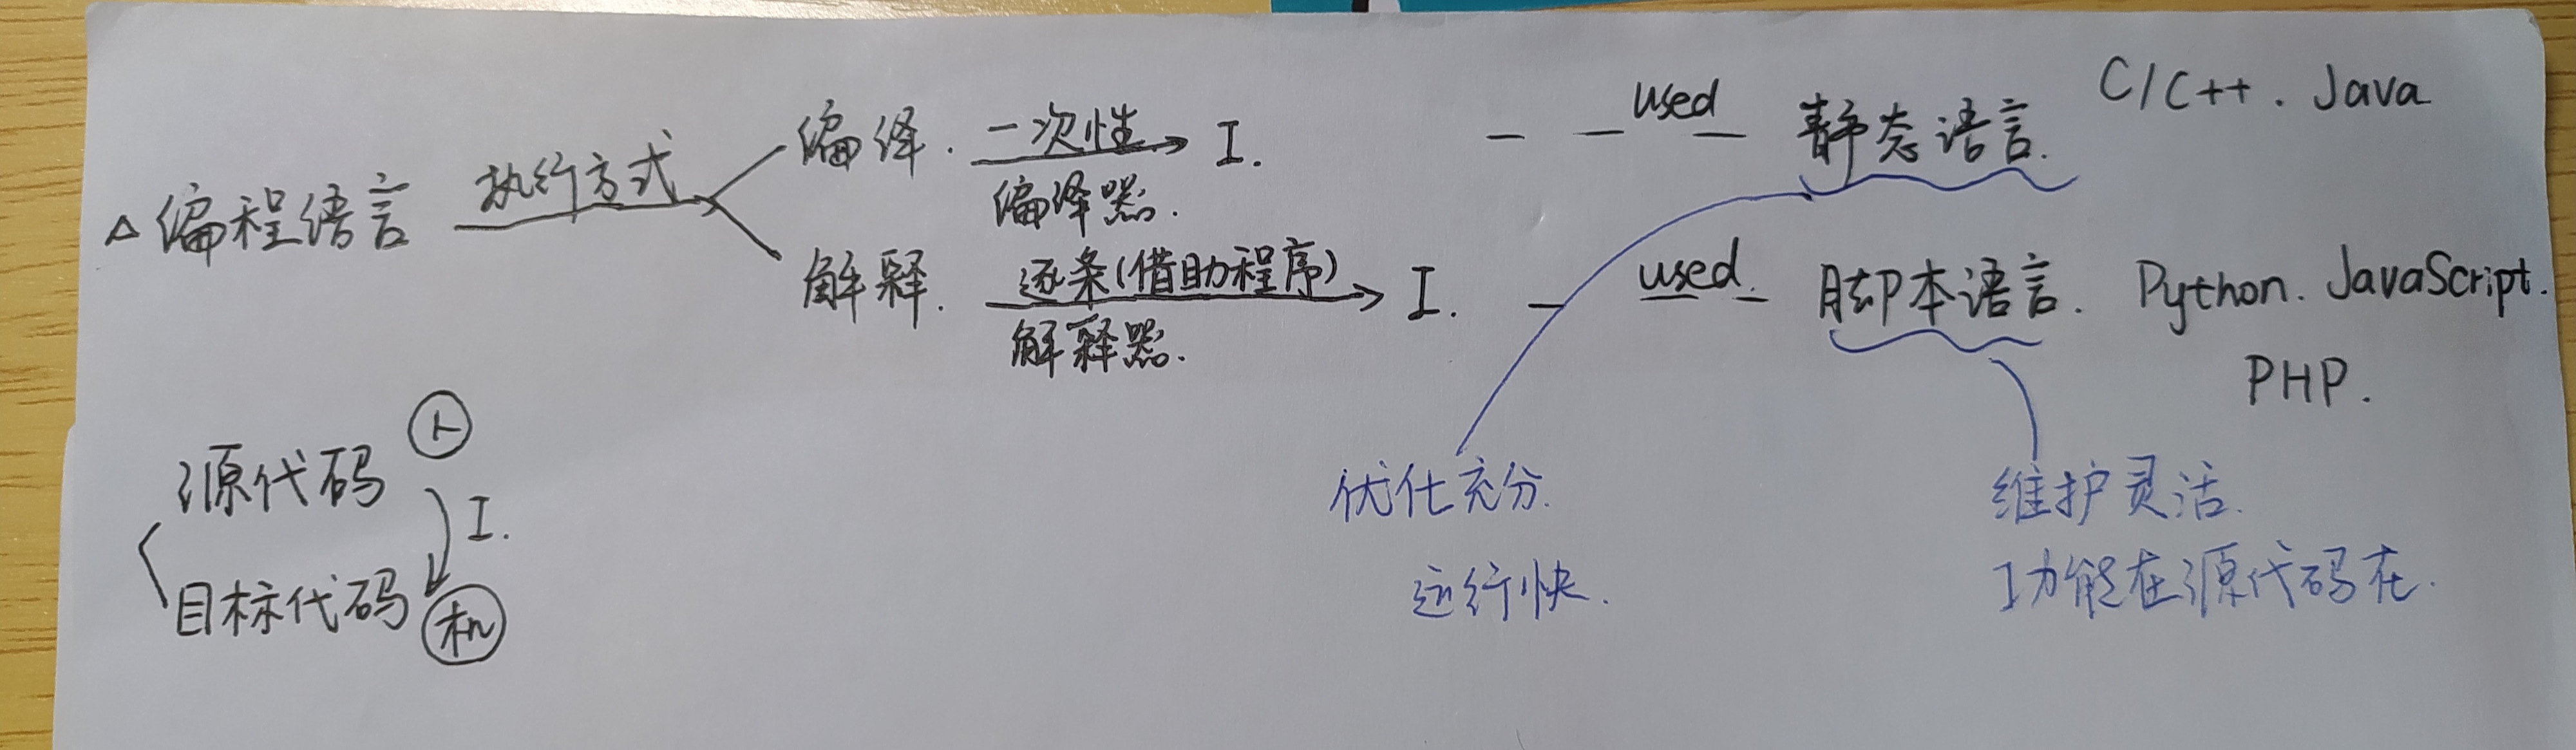 △编程语言 执行方式
编译. 一次性 I.
编译器.
used 静态语言. C/C++. Java
解释. 逐条(借助程序) I.
解释器.
used. 脚本语言. Python. JavaScript.
PHP.
源代码 人
I.
目标代码 机
优化充分.
运行快.
维护灵活.
功能在源代码在.